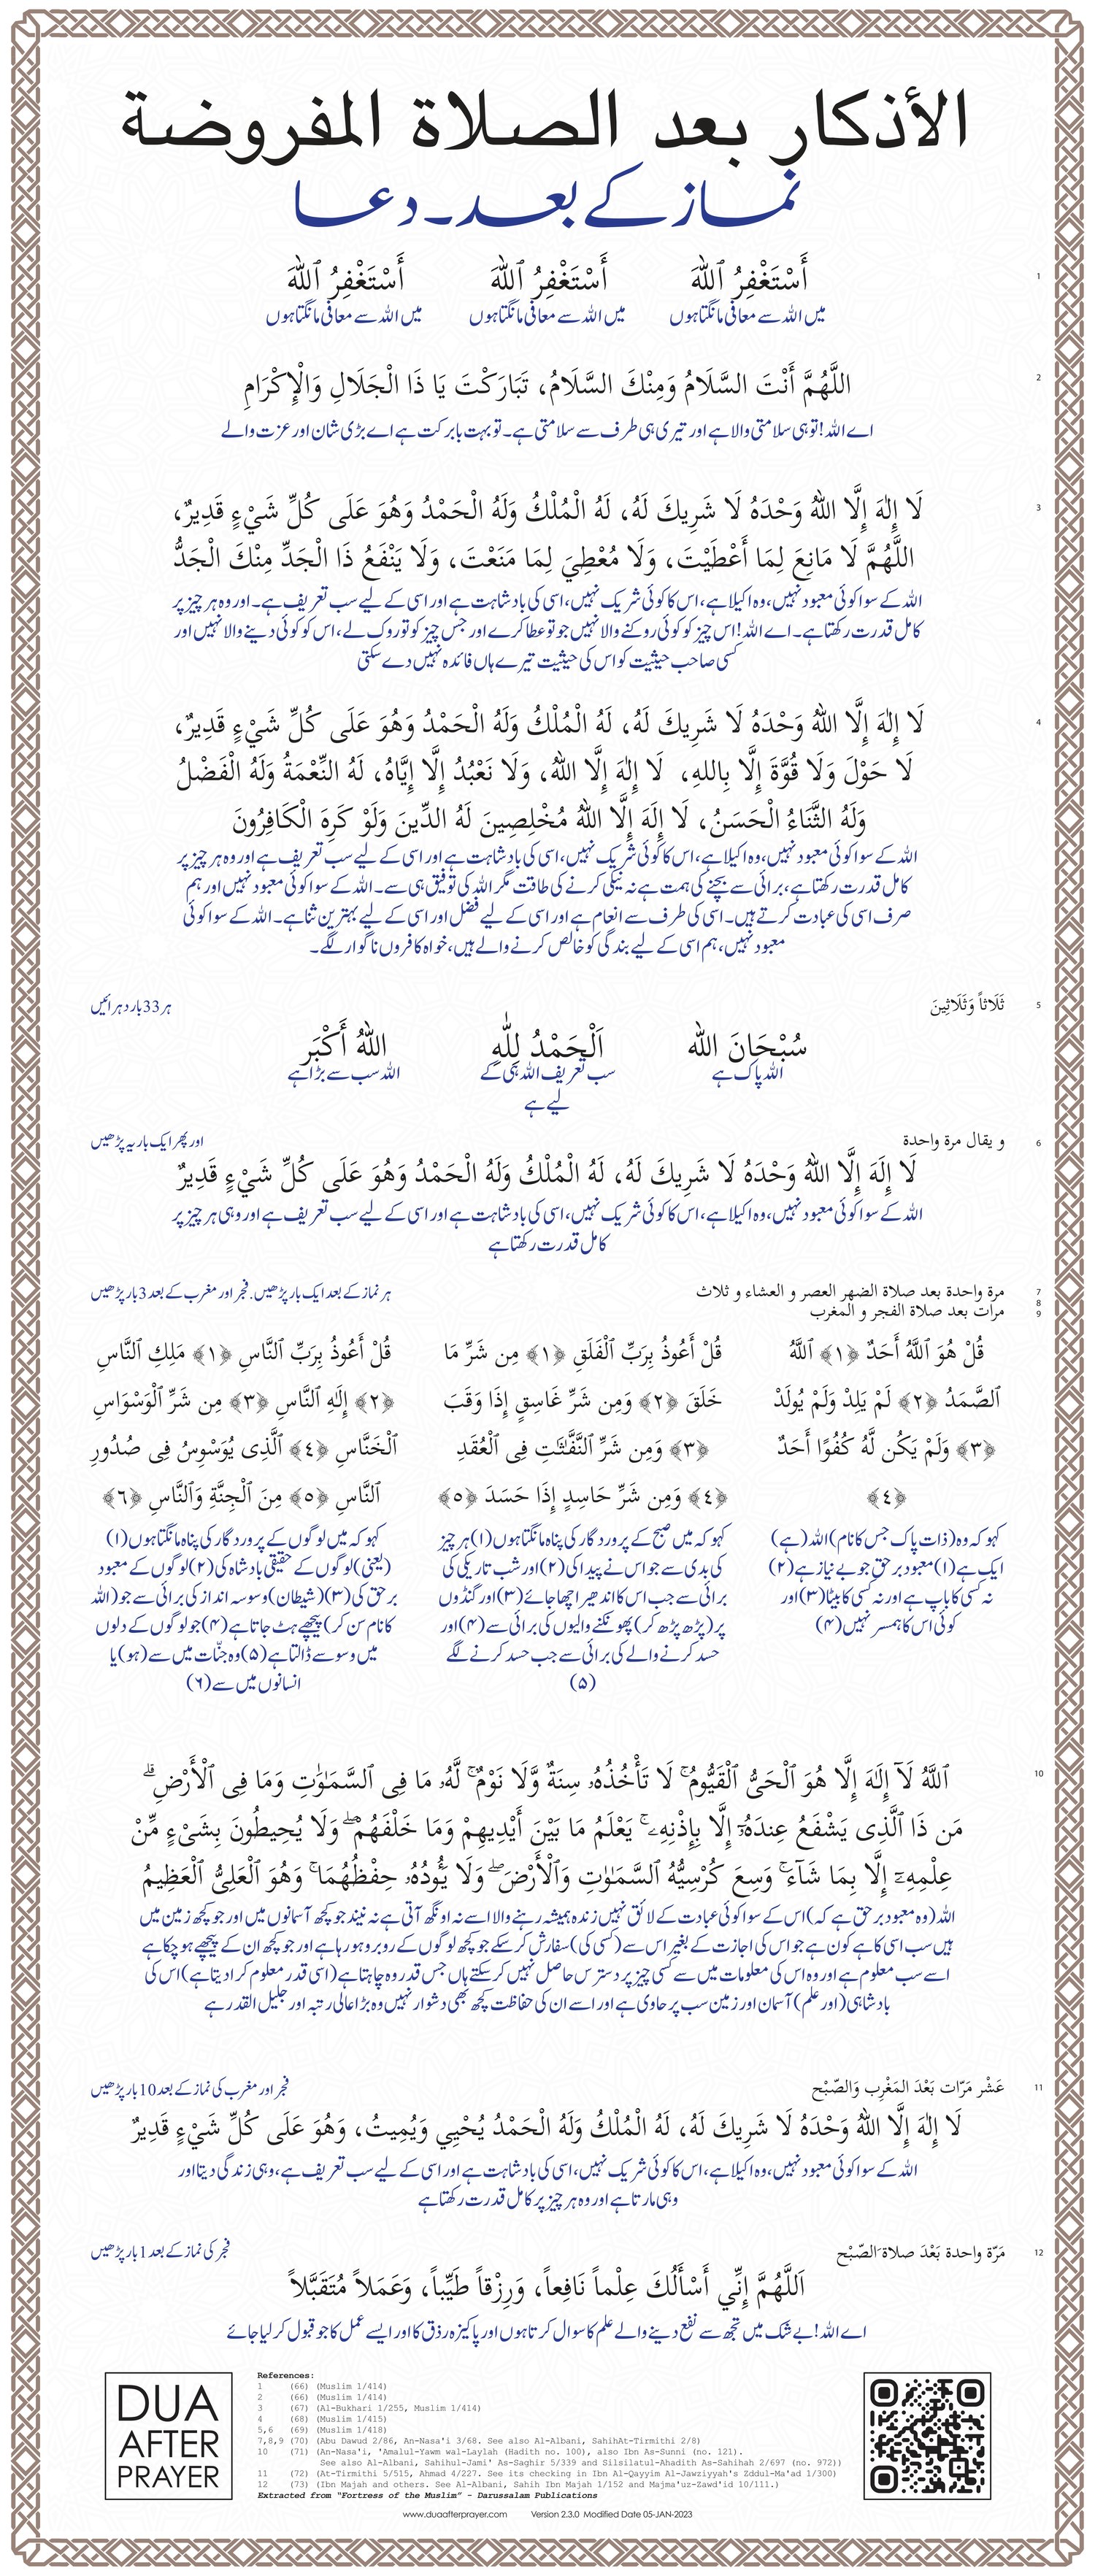 الأذكار بعد الصلاة المفروضة
نماز کے بعد۔ دعا
1
أَسْتَغْفِرُ ٱللّٰهَ أَسْتَغْفِرُ ٱللّٰهَ أَسْتَغْفِرُ ٱللّٰهَ
میں اللہ سے معافی مانگتا ہوں میں اللہ سے معافی مانگتا ہوں میں اللہ سے معافی مانگتا ہوں
2
اللَّهُمَّ أَنْتَ السَّلَامُ وَمِنْكَ السَّلَامُ، تَبَارَكْتَ يَا ذَا الْجَلَالِ وَالْإِكْرَامِ
اے اللہ! تو ہی سلامتی والا ہے اور تیری ہی طرف سے سلامتی ہے۔ تو بہت بابرکت ہے اے بڑی شان اور عزت والے
3
لَا إِلٰهَ إِلَّا اللّٰهُ وَحْدَهُ لَا شَرِيكَ لَهُ، لَهُ الْمُلْكُ وَلَهُ الْحَمْدُ وَهُوَ عَلَى كُلِّ شَيْءٍ قَدِيرٌ،
اللَّهُمَّ لَا مَانِعَ لِمَا أَعْطَيْتَ، وَلَا مُعْطِيَ لِمَا مَنَعْتَ، وَلَا يَنْفَعُ ذَا الْجَدِّ مِنْكَ الْجَدُّ
اللہ کے سوا کوئی معبود نہیں، وہ اکیلا ہے، اس کا کوئی شریک نہیں، اسی کی بادشاہت ہے اور اسی کے لیے سب تعریف ہے۔ اور وہ ہر چیز پر
کامل قدرت رکھتا ہے۔ اے اللہ! اس چیز کو کوئی روکنے والا نہیں جو تو عطا کرے اور جس چیز کو تو روک لے، اس کو کوئی دینے والا نہیں اور
کسی صاحب حیثیت کو اس کی حیثیت تیرے ہاں فائدہ نہیں دے سکتی
4
لَا إِلٰهَ إِلَّا اللّٰهُ وَحْدَهُ لَا شَرِيكَ لَهُ، لَهُ الْمُلْكُ وَلَهُ الْحَمْدُ وَهُوَ عَلَى كُلِّ شَيْءٍ قَدِيرٌ،
لَا حَوْلَ وَلَا قُوَّةَ إِلَّا بِاللهِ، لَا إِلٰهَ إِلَّا اللّٰهُ، وَلَا نَعْبُدُ إِلَّا إِيَّاهُ، لَهُ النِّعْمَةُ وَلَهُ الْفَضْلُ
وَلَهُ الثَّنَاءُ الْحَسَنُ، لَا إِلَهَ إِلَّا اللّٰهُ مُخْلِصِينَ لَهُ الدِّينَ وَلَوْ كَرِهَ الْكَافِرُونَ
اللہ کے سوا کوئی معبود نہیں، وہ اکیلا ہے، اس کا کوئی شریک نہیں، اسی کی بادشاہت ہے اور اسی کے لیے سب تعریف ہے اور وہ ہر چیز پر
کامل قدرت رکھتا ہے، برائی سے بچنے کی ہمت ہے نہ نیکی کرنے کی طاقت مگر اللہ کی توفیق ہی سے۔ اللہ کے سوا کوئی معبود نہیں اور ہم
صرف اسی کی عبادت کرتے ہیں۔ اسی کی طرف سے انعام ہے اور اسی کے لیے فضل اور اسی کے لیے بہترین ثنا ہے۔ اللہ کے سوا کوئی
معبود نہیں، ہم اسی کے لیے بندگی کو خالص کرنے والے ہیں، خواہ کافروں ناگوار لگے۔
5
ثَلَاثاً وَثَلَاثِينَ ہر 33 بار دہرائیں
سُبْحَانَ الله اَلْحَمْدُ لِلّٰهِ اللّٰهُ أَكْبَر
اللہ پاک ہے سب تعریف اللہ ہی کے اللہ سب سے بڑا ہے
لیے ہے
6
و يقال مرة واحدة اور پھر ایک بار یہ پڑھیں
لَا إِلَهَ إِلَّا اللّٰهُ وَحْدَهُ لَا شَرِيكَ لَهُ، لَهُ الْمُلْكُ وَلَهُ الْحَمْدُ وَهُوَ عَلَى كُلِّ شَيْءٍ قَدِيرٌ
اللہ کے سوا کوئی معبود نہیں، وہ اکیلا ہے، اس کا کوئی شریک نہیں، اسی کی بادشاہت ہے اور اسی کے لیے سب تعریف ہے اور وہی ہر چیز پر
کامل قدرت رکھتا ہے
7
8
9
مرة واحدة بعد صلاة الضهر العصر و العشاء و ثلاث ہر نماز کے بعد ایک بار پڑھیں. فجر اور مغرب کے بعد 3 بار پڑھیں
مرات بعد صلاة الفجر و المغرب
قُلْ هُوَ ٱللَّهُ أَحَدٌ ﴿١﴾ ٱللَّهُ
ٱلصَّمَدُ ﴿٢﴾ لَمْ يَلِدْ وَلَمْ يُولَدْ
﴿٣﴾ وَلَمْ يَكُن لَّهُ كُفُوًا أَحَدٌ
﴿٤﴾
کہو کہ وہ (ذات پاک جس کا نام) اللہ (ہے)
ایک ہے (۱) معبود برحق جو بے نیاز ہے (۲)
نہ کسی کا باپ ہے اور نہ کسی کا بیٹا (۳) اور
کوئی اس کا ہمسر نہیں (۴)
قُلْ أَعُوذُ بِرَبِّ ٱلْفَلَقِ ﴿١﴾ مِن شَرِّ مَا
خَلَقَ ﴿٢﴾ وَمِن شَرِّ غَاسِقٍ إِذَا وَقَبَ
﴿٣﴾ وَمِن شَرِّ ٱلنَّفَّـٰثَـٰتِ فِى ٱلْعُقَدِ
﴿٤﴾ وَمِن شَرِّ حَاسِدٍ إِذَا حَسَدَ ﴿٥﴾
کہو کہ میں صبح کے پروردگار کی پناہ مانگتا ہوں (۱) ہر چیز
کی بدی سے جو اس نے پیدا کی (۲) اور شب تاریکی کی
برائی سے جب اس کا اندھیرا چھا جائے (۳) اور گنڈوں
پر (پڑھ پڑھ کر) پھونکنے والیوں کی برائی سے (۴) اور
حسد کرنے والے کی برائی سے جب حسد کرنے لگے
(۵)
قُلْ أَعُوذُ بِرَبِّ ٱلنَّاسِ ﴿١﴾ مَلِكِ ٱلنَّاسِ
﴿٢﴾ إِلَـٰهِ ٱلنَّاسِ ﴿٣﴾ مِن شَرِّ ٱلْوَسْوَاسِ
ٱلْخَنَّاسِ ﴿٤﴾ ٱلَّذِى يُوَسْوِسُ فِى صُدُورِ
ٱلنَّاسِ ﴿٥﴾ مِنَ ٱلْجِنَّةِ وَٱلنَّاسِ ﴿٦﴾
کہو کہ میں لوگوں کے پروردگار کی پناہ مانگتا ہوں (۱)
(یعنی) لوگوں کے حقیقی بادشاہ کی (۲) لوگوں کے معبود
برحق کی (۳) (شیطان) وسوسہ انداز کی برائی سے جو (اللہ
کا نام سن کر) پیچھے ہٹ جاتا ہے (۴) جو لوگوں کے دلوں
میں وسوسے ڈالتا ہے (۵) وہ جنّات میں سے (ہو) یا
انسانوں میں سے (۶)
10
ٱللَّهُ لَآ إِلَـٰهَ إِلَّا هُوَ ٱلْحَىُّ ٱلْقَيُّومُ ۚ لَا تَأْخُذُهُۥ سِنَةٌ وَّلَا نَوْمٌ ۚ لَّهُۥ مَا فِى ٱلسَّمَـٰوَٰتِ وَمَا فِى ٱلْأَرْضِ ۗ
مَن ذَا ٱلَّذِى يَشْفَعُ عِندَهُۥٓ إِلَّا بِإِذْنِهِۦ ۚ يَعْلَمُ مَا بَيْنَ أَيْدِيهِمْ وَمَا خَلْفَهُمْ ۖ وَلَا يُحِيطُونَ بِشَىْءٍ مِّنْ
عِلْمِهِۦٓ إِلَّا بِمَا شَآءَ ۚ وَسِعَ كُرْسِيُّهُ ٱلسَّمَـٰوَٰتِ وَٱلْأَرْضَ ۖ وَلَا يَـُٔودُهُۥ حِفْظُهُمَا ۚ وَهُوَ ٱلْعَلِىُّ ٱلْعَظِيمُ
اللہ (وہ معبود برحق ہے کہ) اس کے سوا کوئی عبادت کے لائق نہیں زندہ ہمیشہ رہنے والا اسے نہ اونگھ آتی ہے نہ نیند جو کچھ آسمانوں میں اور جو کچھ زمین میں
ہیں سب اسی کا ہے کون ہے جو اس کی اجازت کے بغیر اس سے (کسی کی) سفارش کر سکے جو کچھ لوگوں کے روبرو ہو رہا ہے اور جو کچھ ان کے پیچھے ہو چکا ہے
اسے سب معلوم ہے اور وہ اس کی معلومات میں سے کسی چیز پر دسترس حاصل نہیں کر سکتے ہاں جس قدر وہ چاہتا ہے (اسی قدر معلوم کرا دیتا ہے) اس کی
بادشاہی (اور علم) آسمان اور زمین سب پر حاوی ہے اور اسے ان کی حفاظت کچھ بھی دشوار نہیں وہ بڑا عالی رتبہ اور جلیل القدر ہے
11
عَشْر مَرّات بَعْدَ المَغْرِب وَالصّبْح فجر اور مغرب کی نماز کے بعد 10 بار پڑھیں
لَا إِلٰهَ إِلَّا اللّٰهُ وَحْدَهُ لَا شَرِيكَ لَهُ، لَهُ الْمُلْكُ وَلَهُ الْحَمْدُ يُحْيِي وَيُمِيتُ، وَهُوَ عَلَى كُلِّ شَيْءٍ قَدِيرٌ
اللہ کے سوا کوئی معبود نہیں، وہ اکیلا ہے، اس کا کوئی شریک نہیں، اسی کی بادشاہت ہے اور اسی کے لیے سب تعریف ہے، وہی زندگی دیتا اور
وہی مارتا ہے اور وہ ہر چیز پر کامل قدرت رکھتا ہے
12
مَرّة واحدة بَعْدَ صلاة َالصّبْح فجر کی نماز کے بعد 1 بار پڑھیں
اَللَّهُمَّ إِنِّي أَسْأَلُكَ عِلْماً نَافِعاً، وَرِزْقاً طَيِّباً، وَعَمَلاً مُتَقَبَّلاً
اے اللہ! بے شک میں تجھ سے نفع دینے والے علم کا سوال کرتا ہوں اور پاکیزہ رذق کا اور ایسے عمل کا جو قبول کر لیا جائے
DUA
AFTER
PRAYER
References:
1 (66) (Muslim 1/414)
2 (66) (Muslim 1/414)
3 (67) (Al-Bukhari 1/255, Muslim 1/414)
4 (68) (Muslim 1/415)
5,6 (69) (Muslim 1/418)
7,8,9 (70) (Abu Dawud 2/86, An-Nasa'i 3/68. See also Al-Albani, SahihAt-Tirmithi 2/8)
10 (71) (An-Nasa'i, 'Amalul-Yawm wal-Laylah (Hadith no. 100), also Ibn As-Sunni (no. 121).
See also Al-Albani, Sahihul-Jami' As-Saghir 5/339 and Silsilatul-Ahadith As-Sahihah 2/697 (no. 972))
11 (72) (At-Tirmithi 5/515, Ahmad 4/227. See its checking in Ibn Al-Qayyim Al-Jawziyyah's Zddul-Ma'ad 1/300)
12 (73) (Ibn Majah and others. See Al-Albani, Sahih Ibn Majah 1/152 and Majma'uz-Zawd'id 10/111.)
Extracted from "Fortress of the Muslim" - Darussalam Publications
www.duaafterprayer.com Version 2.3.0 Modified Date 05-JAN-2023